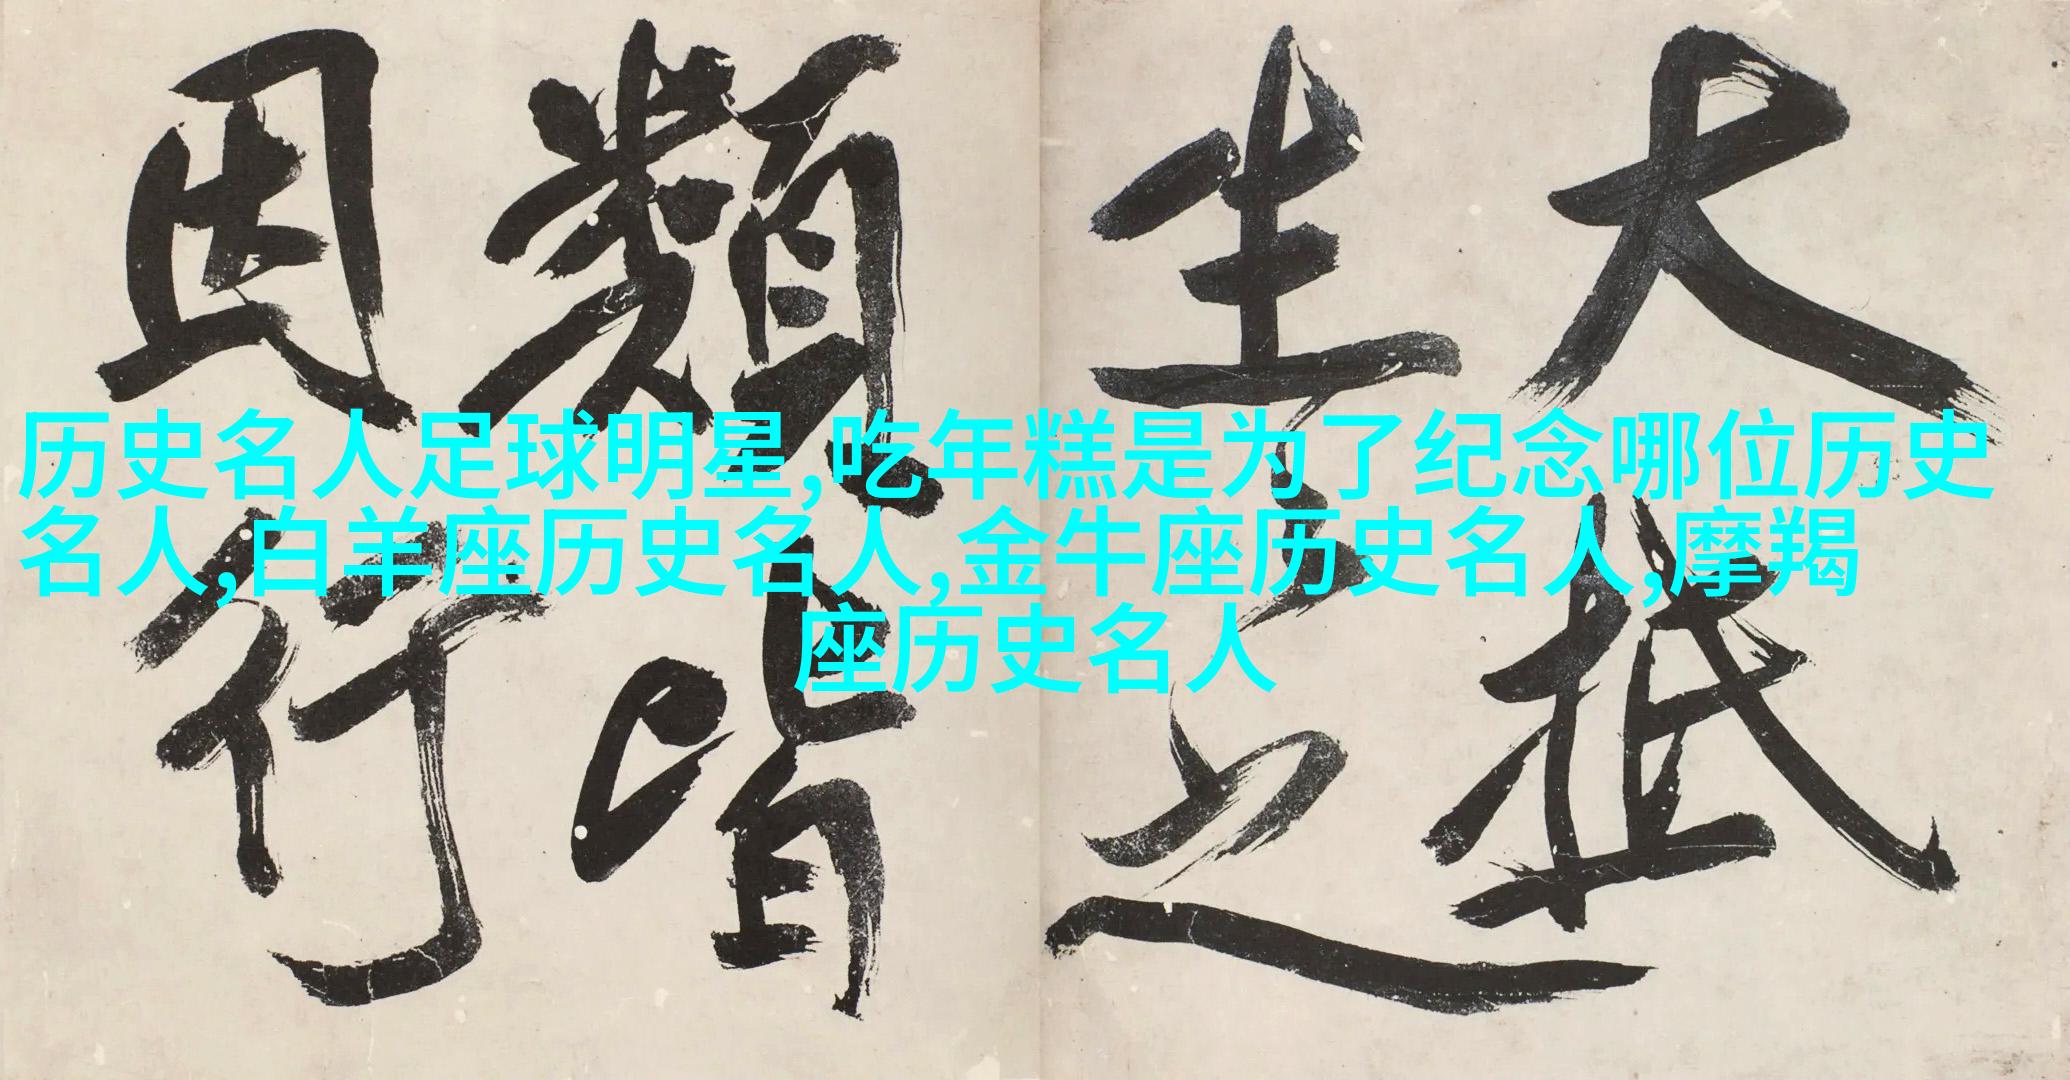 历史名人足球明星,吃年糕是为了纪念哪位历史
名人,白羊座历史名人,金牛座历史名人,摩羯
座历史名人
大抵
生之
類皆
因行